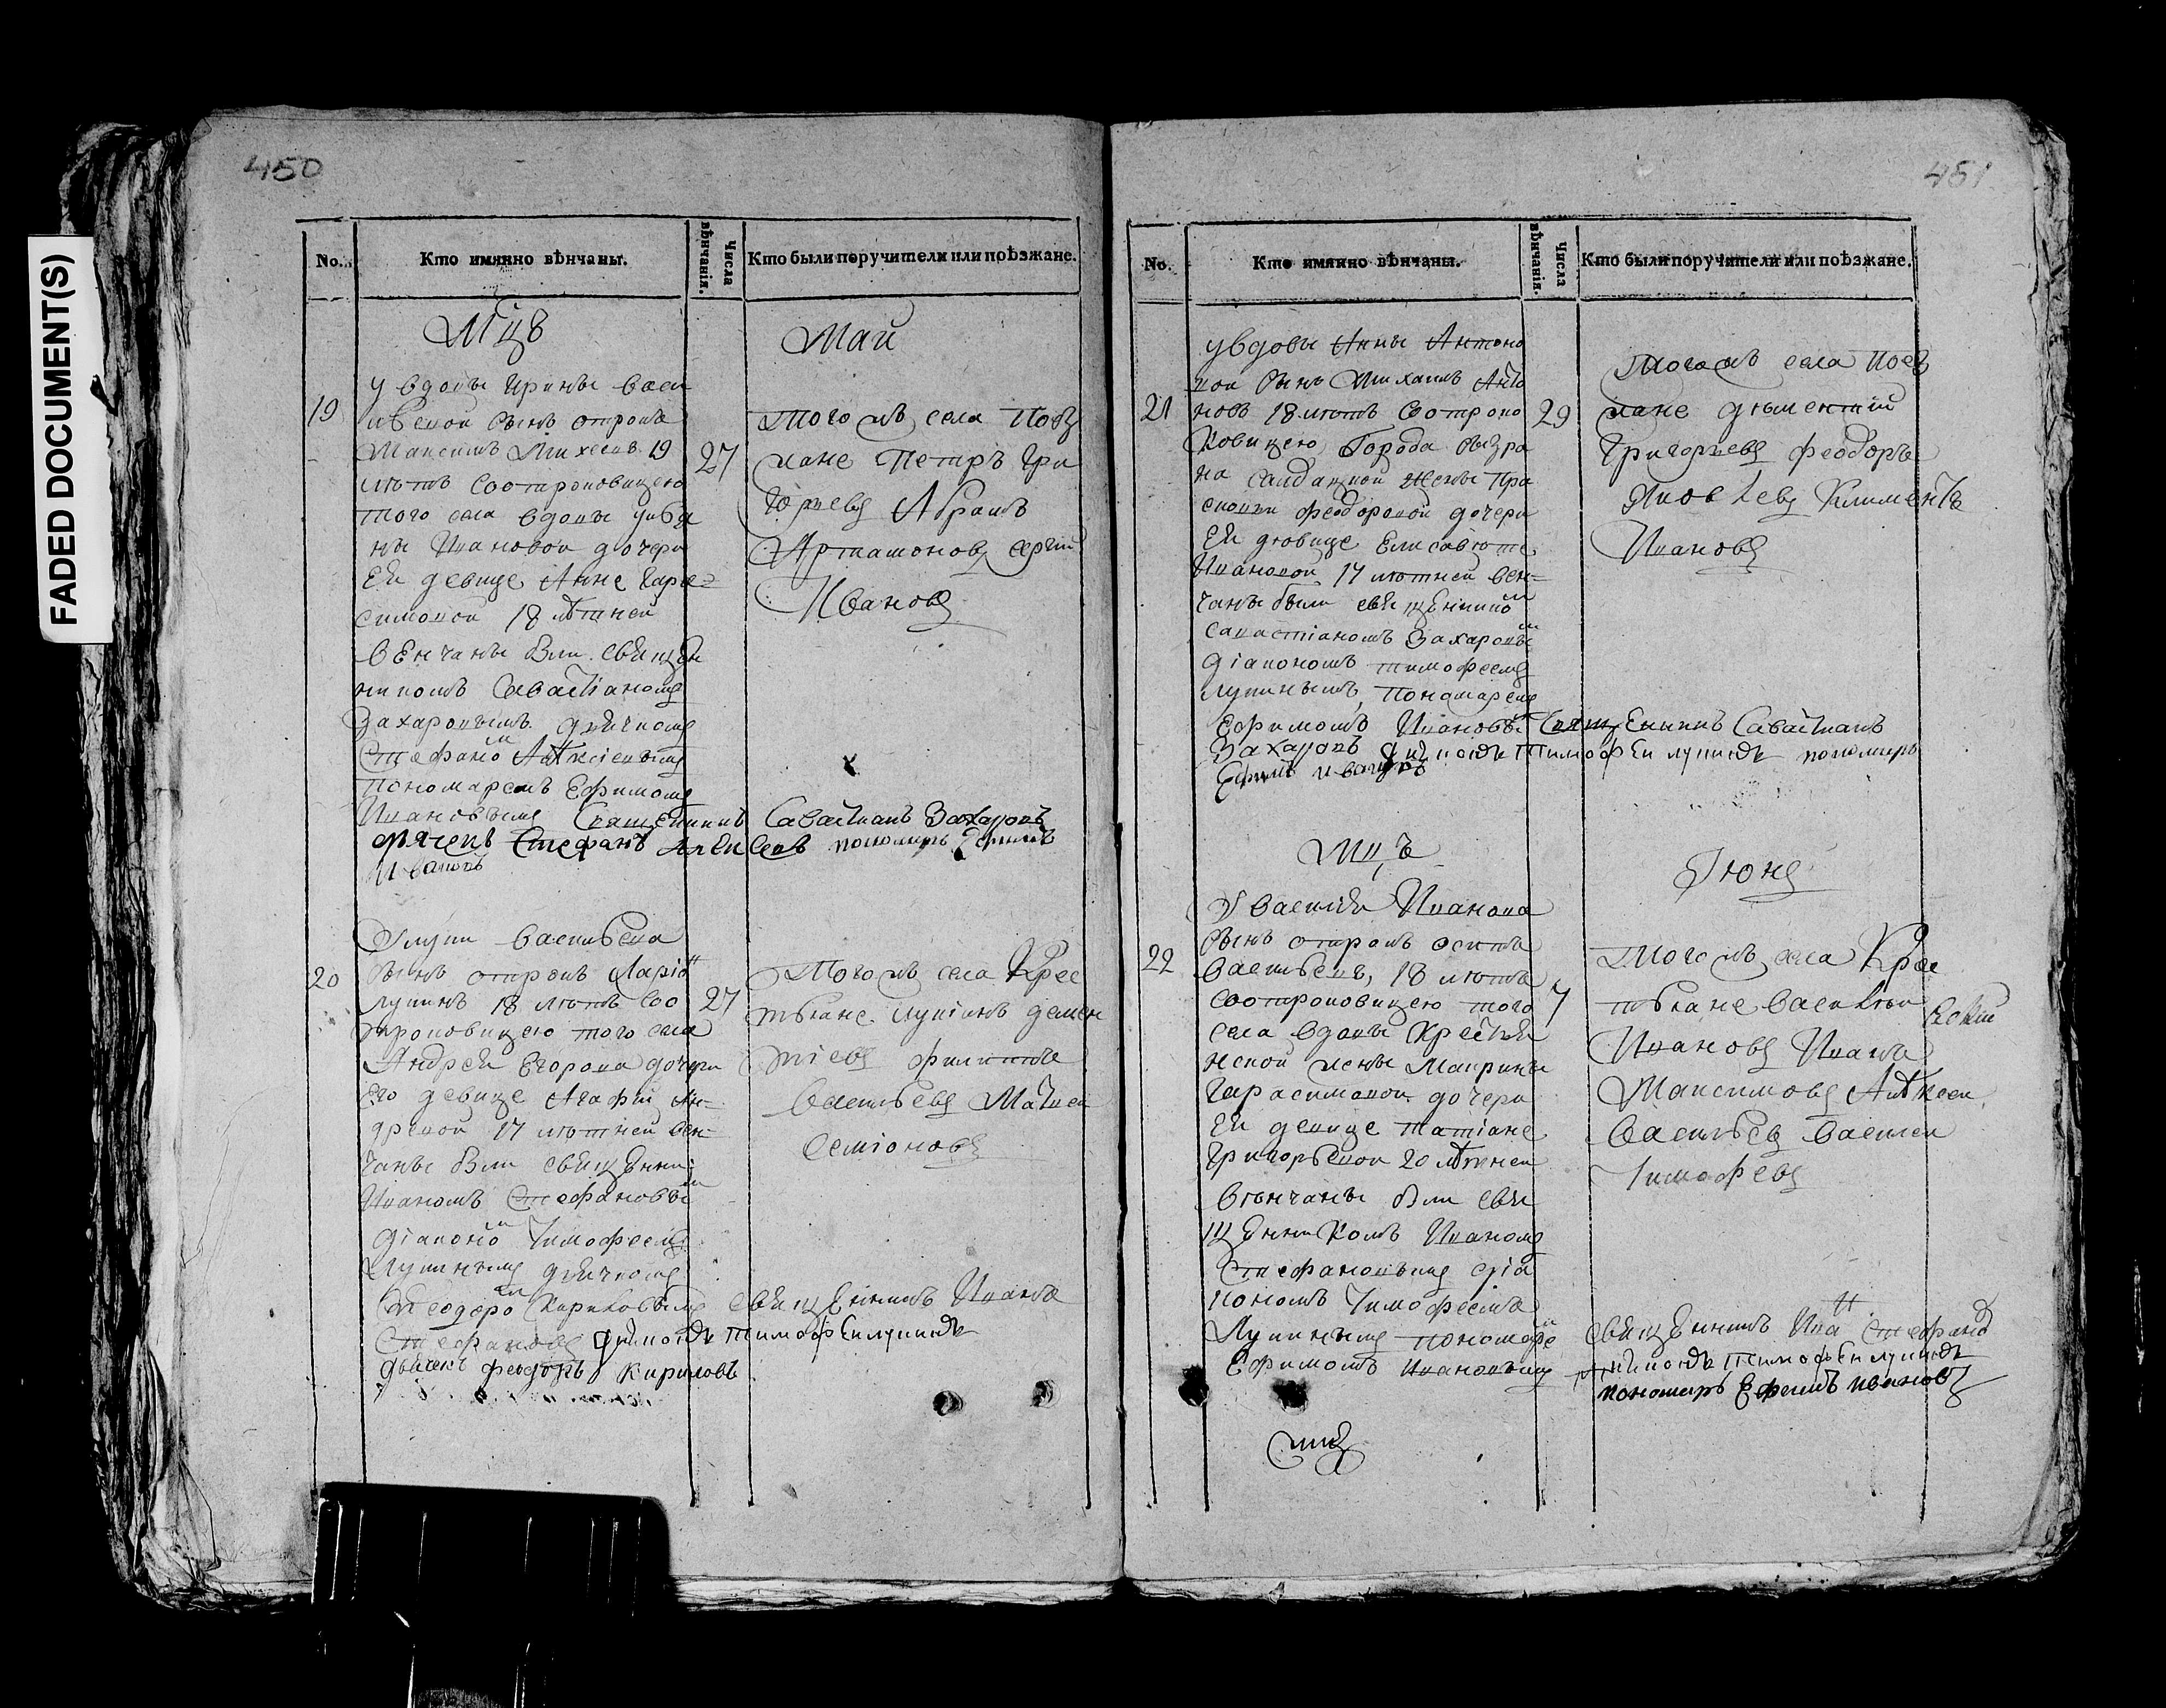 FADED DOCUMENT(S)
450
No. Кто имянно вѣнчаны. Числа вѣнчанія. Кто были поручители или поѣзжане.
Мцъ Маи
у вдовы Ирины Васи
19 лвевой сынъ отрокъ
Максимъ Михеевъ 19
лѣтъ соотроковицею
того села вдовы Улья
ны Ивановой дочери
Ея девице Анне Гара=
симовой 18 лѣтней
венчаны Были священ
никомъ Савастіаномъ
Захаровымъ дьячкомъ
Стефаномъ Алексіевымъ
пономаремъ Ефимомъ
Ивановымъ
27
того жъ села Поез
жане Петръ Гри
горьевъ Абрамъ
Артамоновъ Сергій
Ивановъ
Священникъ Савастианъ Захаровъ
дьячекъ Стефанъ Алексеевъ пономарь Ефимъ
Ивановъ
У Лупи Васильева
20 сынъ отрокъ Ларіонъ
Лупинъ 18 лѣтъ соо
троковицею того села
Андрея Егорова дочери
Его девице Агафіи Ан=
древой 17 лѣтней вен=
чаны Были священни
Иваномъ Стефановымъ
діакономъ Тимофеемъ
Лупинымъ дьячкомъ
Феодоромъ Кириловымъ
27
Того жъ села Крес
тьяне
Филиппъ
Васильевъ Матвей
Семіоновъ
священникъ Иванъ
Стефановъ діаконъ Тимофей Лупинъ
дьячекъ Феодоръ Кириловъ
451
No. Кто имянно вѣнчаны. Числа вѣнчанія. Кто были поручители или поѣзжане.
у вдовы Анны Антоно
вой сынъ Михаилъ Анто
21 новъ 18 лѣтъ соотроко
ковицею Города Сызра
на салдацкой жены Пра
сковьи Феодоровой дочери
Ея дѣвице Елисавете
Ивановой 17 лѣтней вен=
чаны были священникомъ
Савастіаномъ Захаровымъ
діакономъ Тимофеемъ
Лупинымъ, пономаремъ
Ефимомъ Ивановымъ
29
Того жъ села Поез
жане Дѣментій
Григорьевъ Феодоръ
Яковлевъ Климентъ
Ивановъ
Священникъ Савастианъ
Захаровъ діаконъ Тимофей Лупинъ пономарь
Ефимъ Ивановъ
Мцъ Іюнь
У Василія Иванова
сынъ отрокъ Осипъ
22 Васильевъ, 18 лѣтъ
соотроковицею того
села вдовы Крестья
нской жены Маврины
Гарасимовой дочери
Ея девице Татіане
Григорьевой 20 лѣтней
вѣнчаны Были свя
щенникомъ Иваномъ
Стефановымъ діа
кономъ Тимофеемъ
Лупинымъ пономаремъ
Ефимомъ Ивановымъ
7
Того жъ села Крес
тьяне Василій
Ивановъ Иванъ
Максимовъ Алексей
Васильевъ Василей
Тимофевъ
священникъ Иванъ Стефановъ
діаконъ Тимофей Лупинъ
пономарь Ефимъ Ивановъ
Мцъ